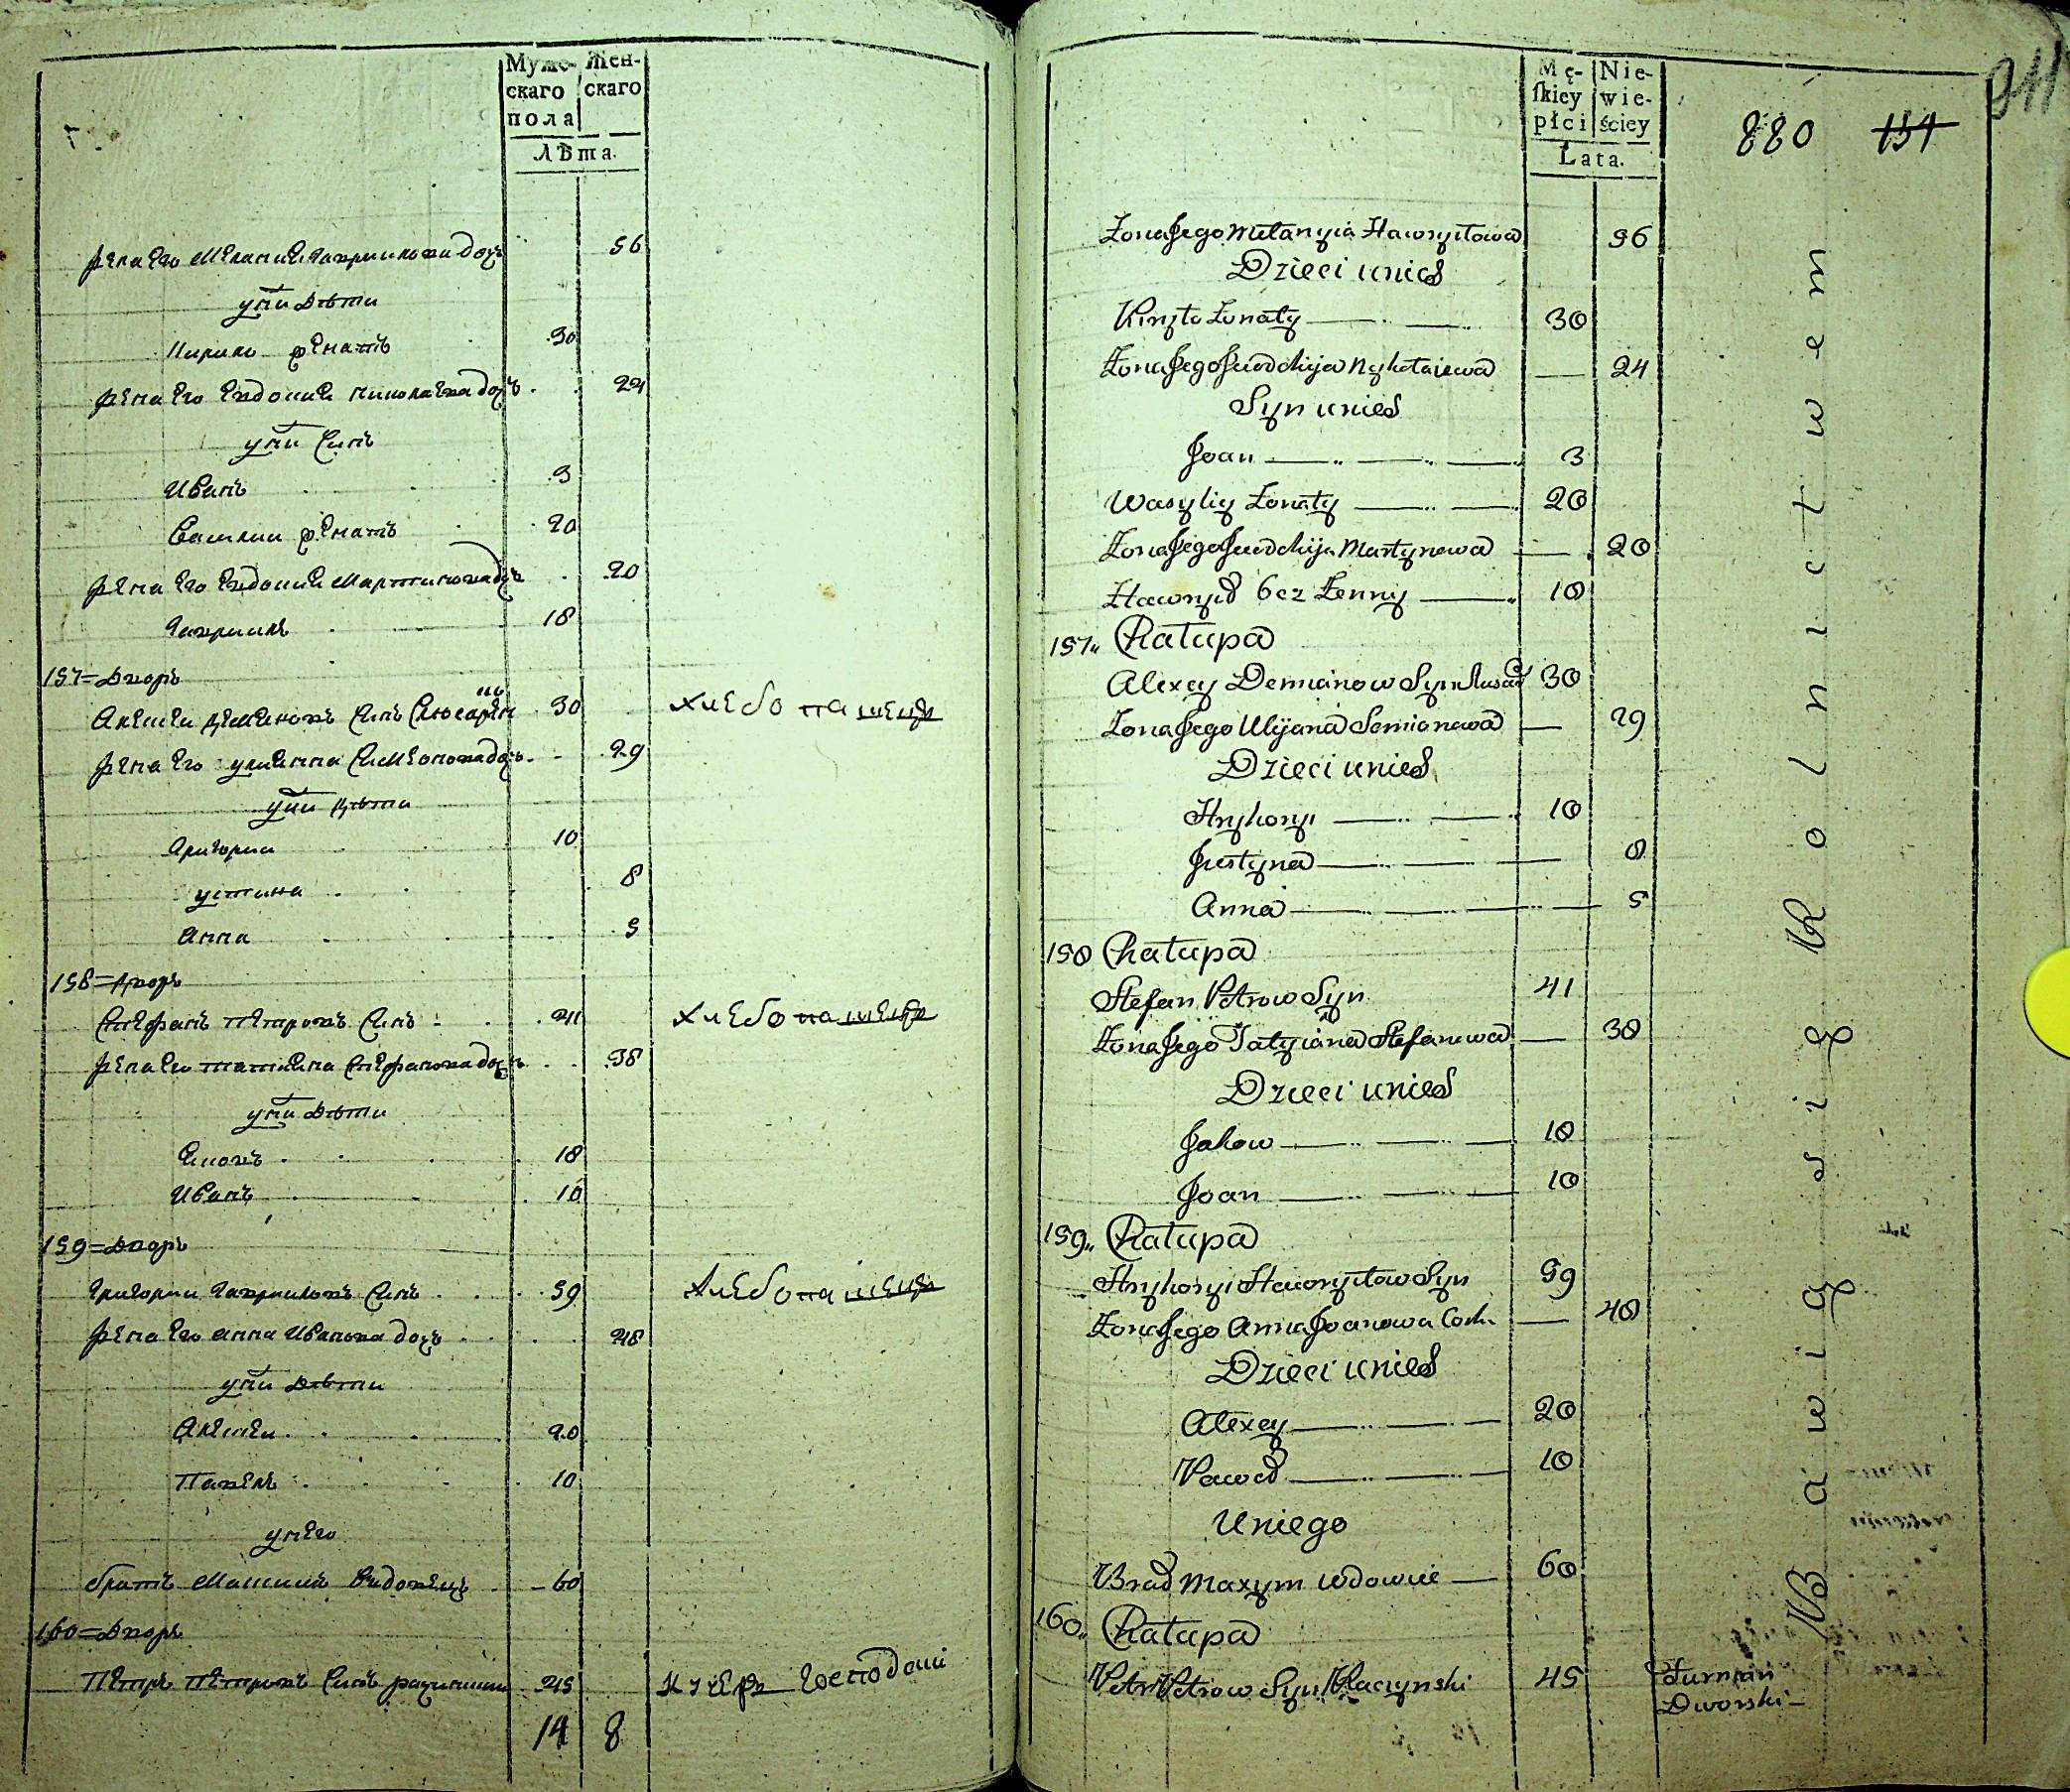 Муже-
скаго
пола
Жен-
скаго
Лѣта.
жена его Мелания Гавриилова дочь 56
у них дѣти
Кирило женатъ 30
жена его Евдокия Николаева дочь 24
у них Синъ
Иванъ 3
Василий женатъ 20
жена его Евдокия Мартинова дочь 20
Гавриилъ 18
157= Дворъ
Алексей Демяновъ Синъ 30 хлебопашецъ
жена его Улиянна Симеонова дочь 29
у них дѣти
Григорий 10
Устина 8
Анна 5
158= Дворъ
Стефанъ Петровъ Синъ 41 хлебопашецъ
жена его Татияна Стефанова дочь 38
у них дѣти
Яковъ 18
Иванъ 10
159= Дворъ
Григорий Гавриловъ Синъ 59 хлебопашецъ
жена его Анна Иванова дочь 48
у них дѣти
Алексей 20
Павелъ 10
у него
братъ Максимъ вдовецъ 60
160= Дворъ
Петръ Петровъ Синъ 45 кучеръ Господский
14 8
Mę-
ſkiey
płci
Nie-
wie-
ściey
Lata.
880 154
Żona Jego Melanyia Hawryłowa 56
Dzieci u nich
Kiryło Żonaty 30
Żona Jego Jewdokija Nykołaiewa 24
Syn u nich
Joan 3
Wasyliy Żonaty 20
Żona Jego Jewdokija Martynowa 20
Hawrył bez Żenny 18
157. Chałupa
Alexey Demianow Syn 30
Żona Jego Ulijana Semionowa 29
Dzieci u nich
Hryhoryi 10
Justyna 8
Anna 5
158 Chałupa
Stefan Petrow Syn 41
Żona Jego Tatyiana Stefanowa 38
Dzieci u nich
Jakow 18
Joan 10
159. Chałupa
Hryhoryi Hawryłow Syn 59
Żona Jego Anna Joanowa Cork. 48
Dzieci u nich
Alexey 20
Paweł 10
U niego
Brat Maxym wdowiec 60
160. Chałupa
Petr Petrow Syn Raczynski 45 Furman
Dworski
Bawią się Rolnictwem